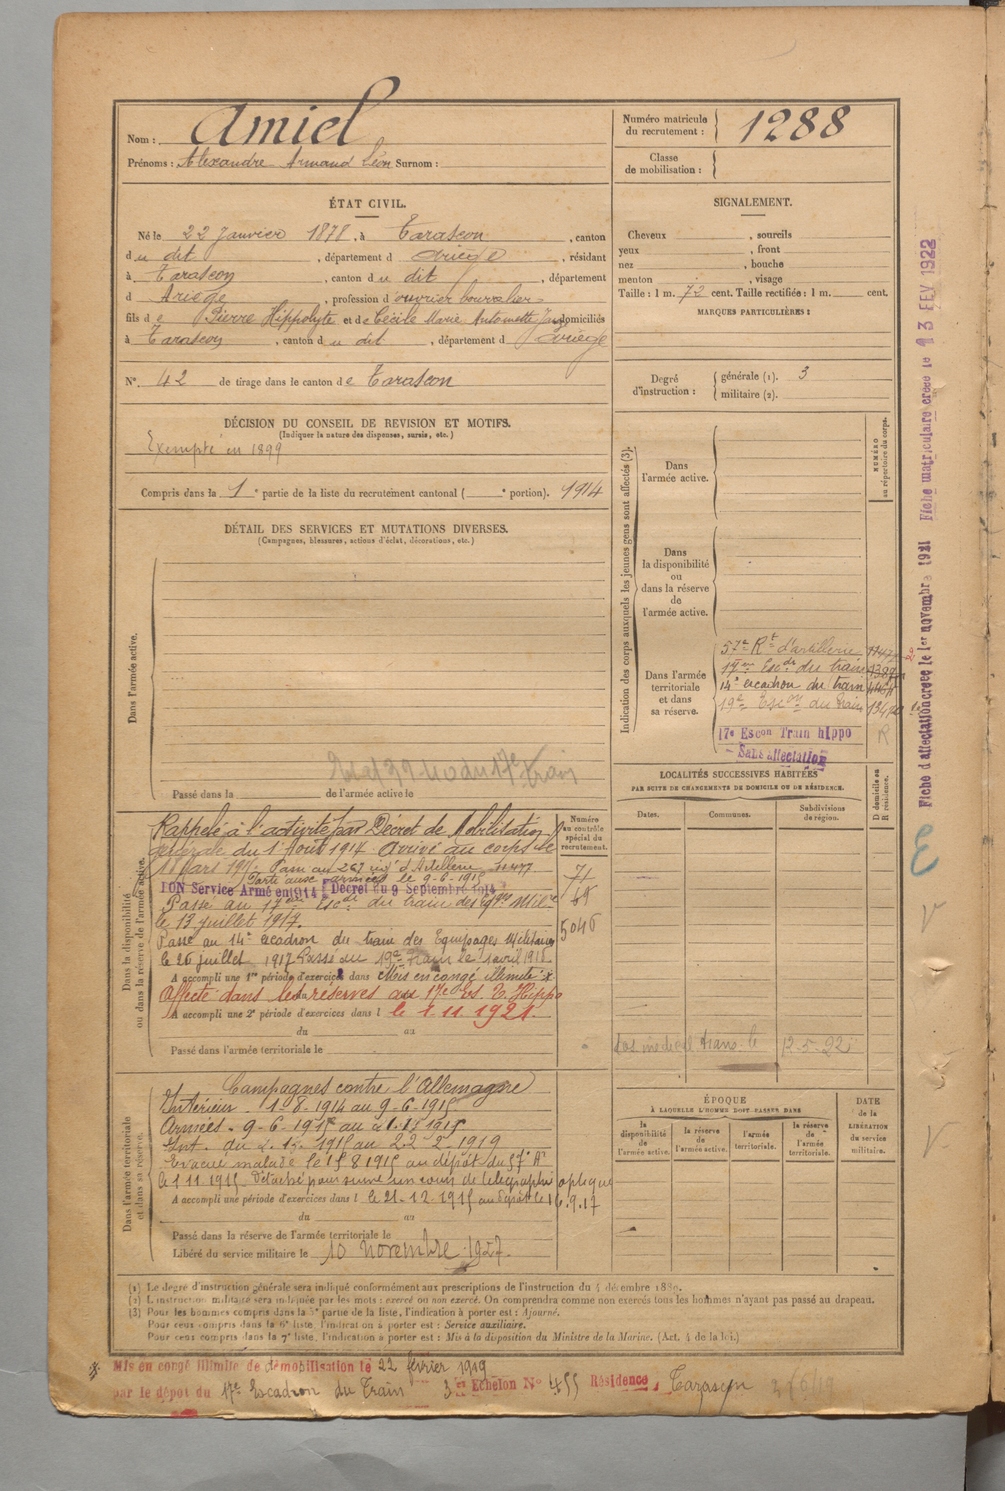 Nom : Amiel
Prénoms : Alexandre Armand Léon Surnom :
Numéro matricule du recrutement : 1288
Classe de mobilisation :
ÉTAT CIVIL.
Né le 22 Janvier 1878, à Tarascon, canton
du dit, département d Ariège, résidant
à Tarascon, canton du dit, département
d Ariège, profession d'ouvrier bourrelier
fils de Pierre Hippolyte et de Cécile Marie Antoinette domiciliés
à Tarascon, canton du dit, département d Ariège
N° 42 de tirage dans le canton de Tarascon
SIGNALEMENT.
Cheveux , sourcils
yeux , front
nez , bouche
menton , visage
Taille : 1 m. 72 cent. Taille rectifiée : 1 m. cent.
MARQUES PARTICULIÈRES :
Degré d'instruction : générale (1). 3
militaire (2).
DÉCISION DU CONSEIL DE REVISION ET MOTIFS.
(Indiquer la nature des dispenses, sursis, etc.)
Exempté en 1899
Compris dans la 1e partie de la liste du recrutement cantonal ( e portion). 1914
DÉTAIL DES SERVICES ET MUTATIONS DIVERSES.
(Campagnes, blessures, actions d'éclat, décorations, etc.)
Dans l'armée active.
Passé dans la de l'armée active le
Indication des corps auxquels les jeunes gens sont affectés (3).
NUMÉRO au répertoire du corps.
Dans l'armée active.
Dans la disponibilité ou dans la réserve de l'armée active.
Dans l'armée territoriale et dans sa réserve.
57e Rt d'artillerie
17me Escdr du train
14e escadron du train
19e Escon du train
17e Escon Train hippo
Sans affectation
R
LOCALITÉS SUCCESSIVES HABITÉES
PAR SUITE DE CHANGEMENTS DE DOMICILE OU DE RÉSIDENCE.
Dates.
Communes.
Subdivisions de région.
D domicile ou R résidence.
Dans la disponibilité ou dans la réserve de l'armée active.
Numéro au contrôle spécial du recrutement.
Rappelé à l'activité par Décret de Mobilisation
générale du 1 Août 1914 Arrivé au corps le
11 Mars 1915. Passé au 267 d'Artillerie
Parti aux armées le 9-6-1915
ION Service Armé en 1914 Décret du 9 Septembre 1914
Passé au 17me Escdr du train des Eqges Milres
le 13 juillet 1917.
Passé au 14e escadron du train des Equipages Militaires
le 26 juillet 1917 Passé au 19e Train le 1 avril 1918
A accompli une 1re période d'exercices dans Mis en congé illimité x
Affecté dans les réserves au 17e Es. T. Hippo
A accompli une 2e période d'exercices dans l le 1.11.1921.
du au
Passé dans l'armée territoriale le
5046
Dans l'armée territoriale et dans sa réserve.
Campagnes contre l'Allemagne
Intérieur. 1-8-1914 au 9-6-1915
Armées - 9-6-1915 au
Int. du 1915 au 22-2-1919
Evacué malade le 15 8 1915 au dépôt du 57e Ar
le 1 11 1915 Détaché pour suivre un cours de télégraphie optique
A accompli une période d'exercices dans l le 21-12-1915
du au
Passé dans la réserve de l'armée territoriale le
Libéré du service militaire le 10 novembre 1927.
ÉPOQUE
À LAQUELLE L'HOMME DOIT PASSER DANS
la disponibilité de l'armée active.
la réserve de l'armée active.
l'armée territoriale.
la réserve de l'armée territoriale.
DATE de la LIBÉRATION du service militaire.
(1) Le degré d'instruction générale sera indiqué conformément aux prescriptions de l'instruction du 4 décembre 1889.
(2) L'instruction militaire sera indiquée par les mots : exercé ou non exercé. On comprendra comme non exercés tous les hommes n'ayant pas passé au drapeau.
(3) Pour les hommes compris dans la 5e partie de la liste, l'indication à porter est : Ajourné.
Pour ceux compris dans la 6e liste, l'indication à porter est : Service auxiliaire.
Pour ceux compris dans la 7e liste, l'indication à porter est : Mis à la disposition du Ministre de la Marine. (Art. 4 de la loi.)
x Mis en congé illimité de démobilisation le 22 février 1919
par le dépôt du 17e Escadron du Train 3e Echelon N° 455 Résidence, Tarascon
Fiche d'affectation créée le 1er novembre 1921 Fiche matriculaire créée le 13 FEV 1922